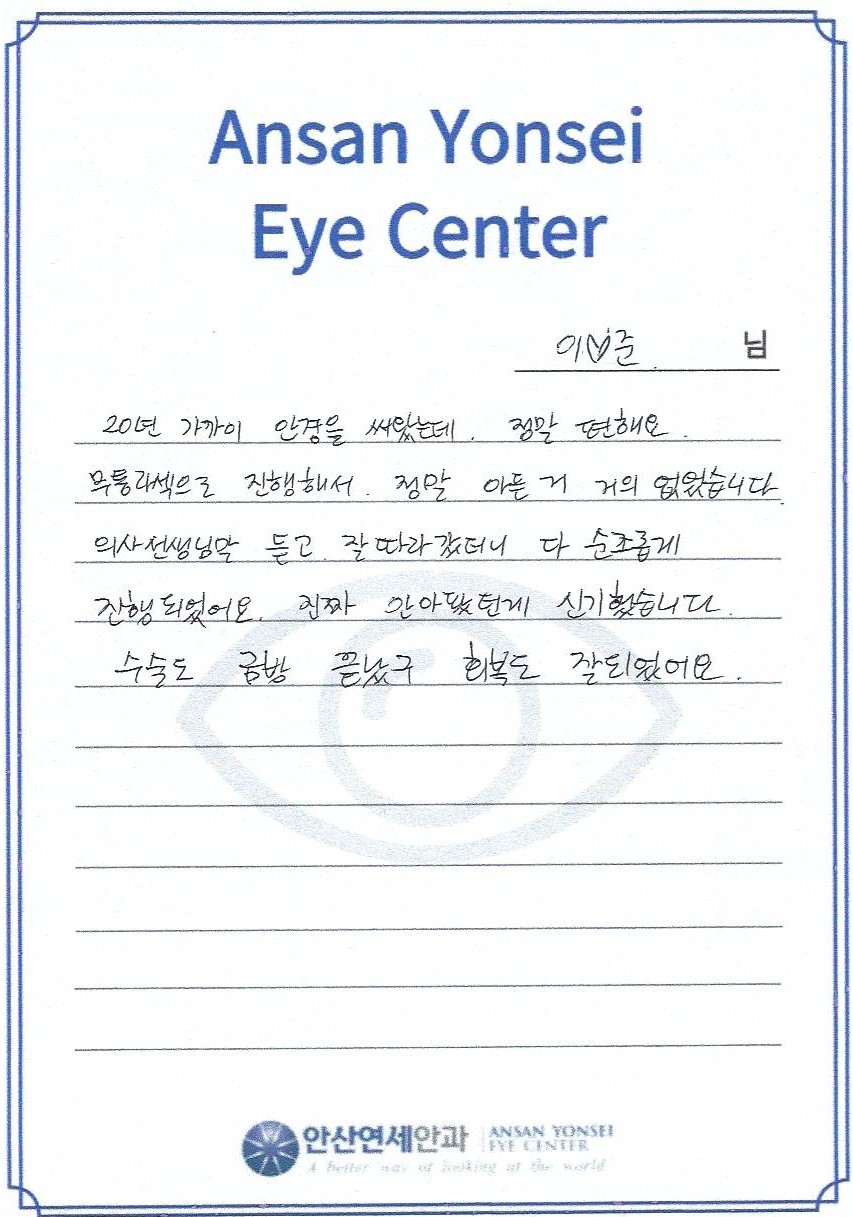 Ansan Yonsei
Eye Center
이♡준 님
20년 가까이 안경을 써왔는데. 정말 편해요.
무통라섹으로 진행해서. 정말 아픈 거 거의 없었습니다.
의사선생님말 듣고 잘 따라갔더니 다 순조롭게
진행되었어요. 진짜 안아팠던게 신기했습니다.
수술도 금방 끝났구 회복도 잘되었어요.
안산연세안과 ANSAN YONSEI
EYE CENTER
A better way of looking at the world